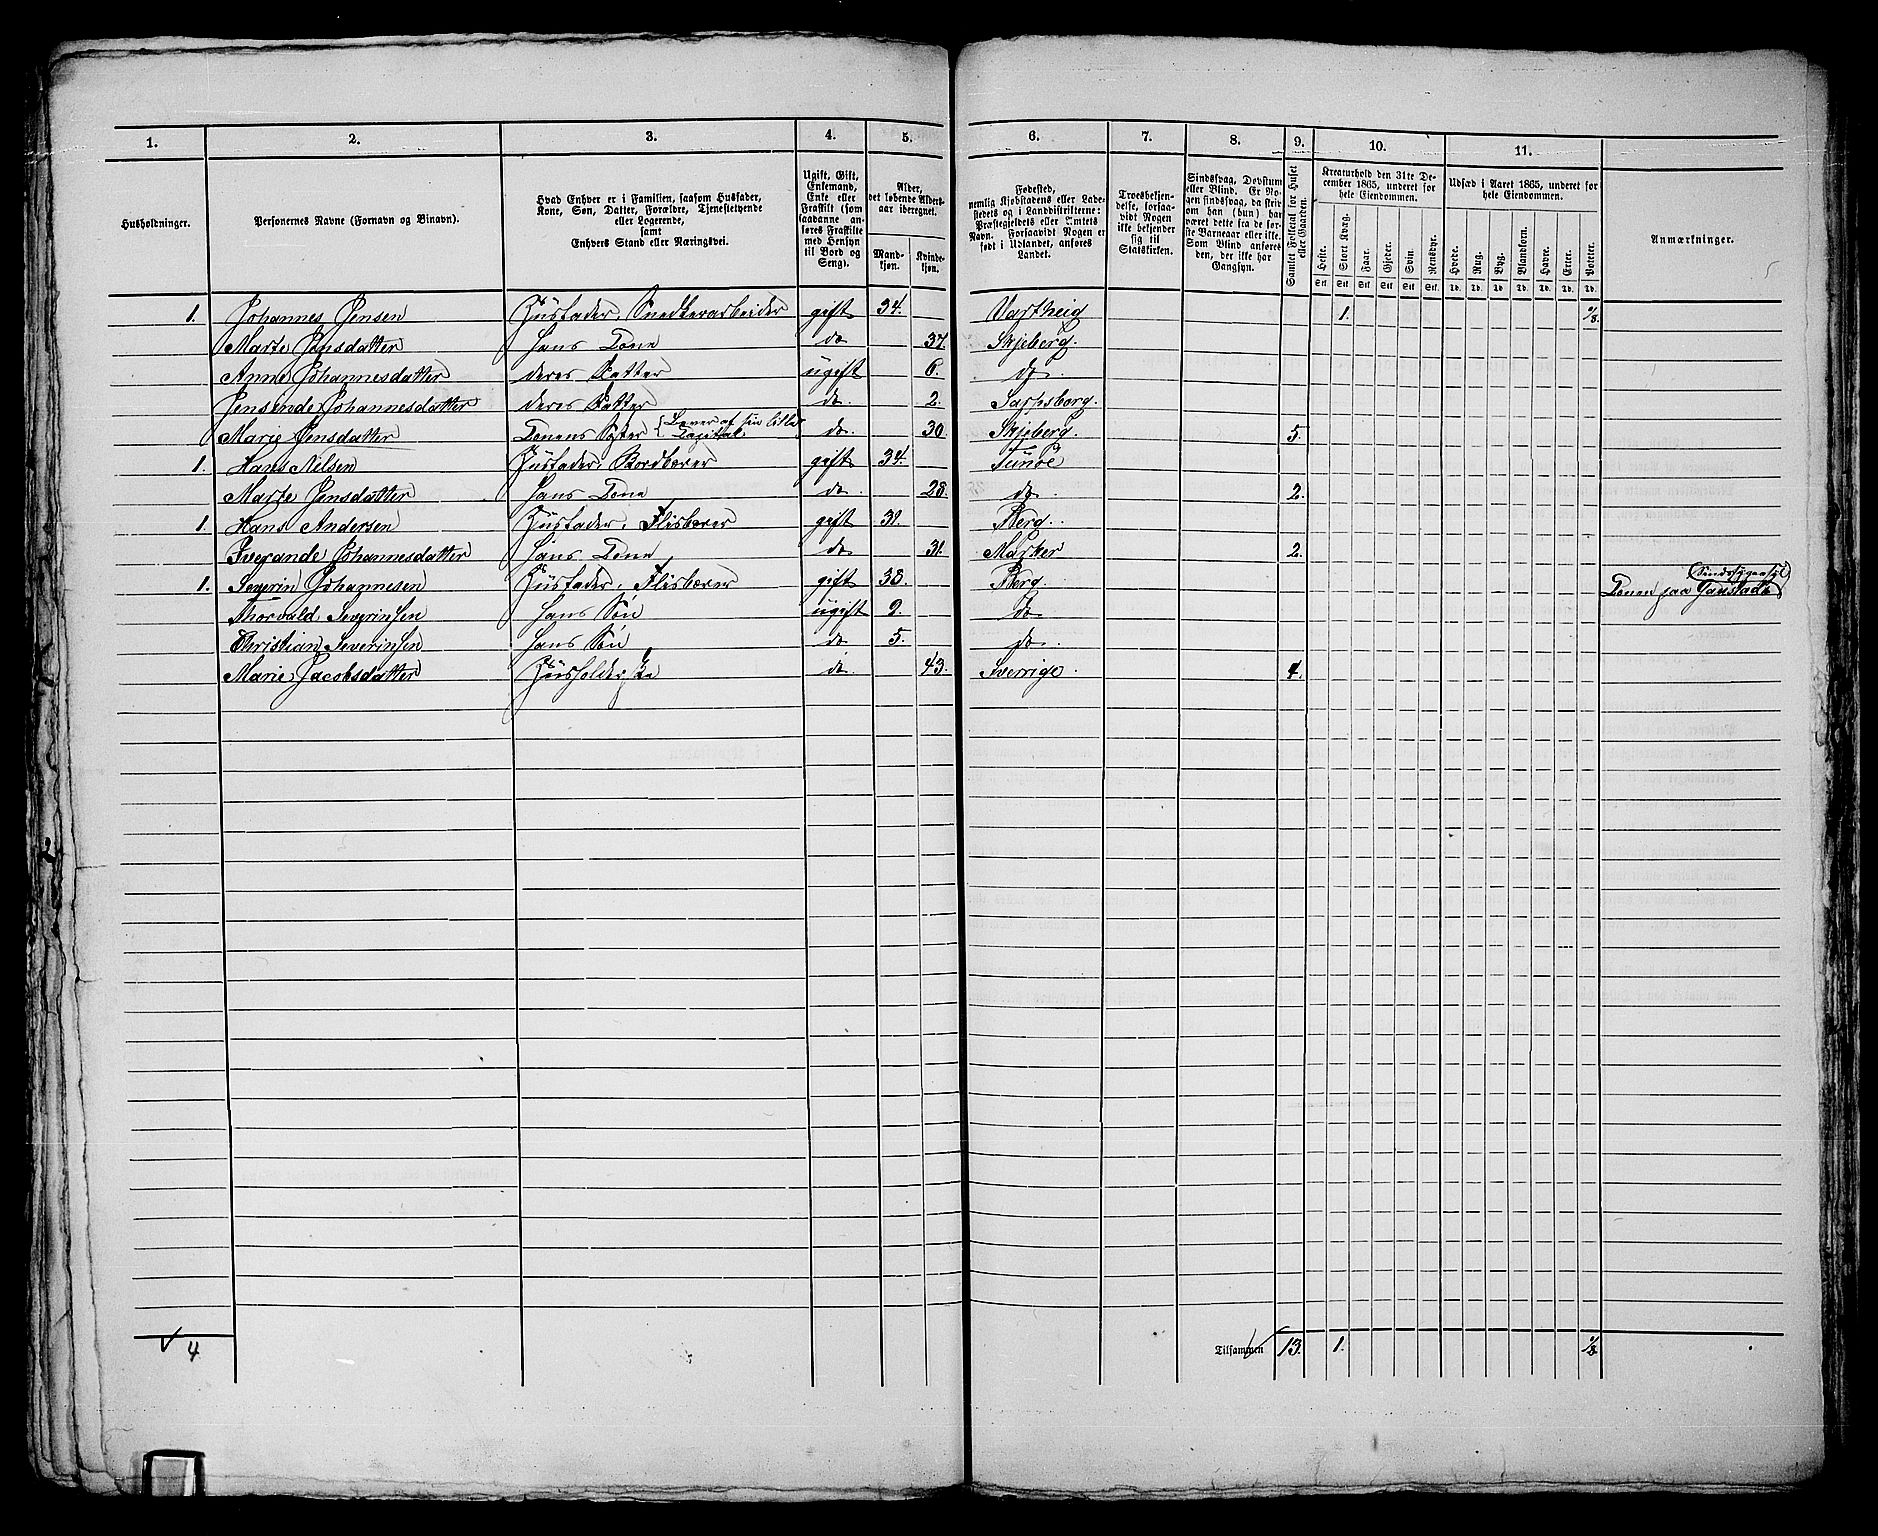 1. 2. 3. 4. 5. 6. 7. 8. 9. 10. 11.
Husholdninger.
Personernes Navne (Fornavn og Binavn).
Hvad Enhver er i Familien, saasom Husfader,
Kone, Søn, Datter, Forældre, Tjenestetyende
eller Logerende,
samt
Enhvers Stand eller Næringsvei.
Ugift, Gift,
Enkemand,
Enke eller
Fraskilt (som
saadanne an-
føres Fraskilte
med Hensyn
til Bord og
Seng).
Alder,
det løbende Alders-
aar iberegnet.
Mand-
kjøn.
Kvinde-
kjøn.
Fødested,
nemlig Kjøbstadens eller Lade-
stedets og i Landdistrikterne:
Præstegjeldets eller Amtets
Navn. Forsaavidt Nogen er
født i Udlandet, anføres
Landet.
Troesbekjen-
delse, forsaa-
vidt Nogen
ikke bekjender
sig til
Statskirken.
Sindssvag, Døvstum
eller Blind. Er No-
gen sindssvag, da skriv
om han (hun) har
været dette fra de før-
ste Barneaar eller ikke.
Som Blind anføres
den, der ikke har
Gangsyn.
Samlet Folketal for Huset
eller Gaarden.
Kreaturhold den 31te De-
cember 1865, underet for
hele Eiendommen.
Heste. Stort Kvæg. Faar. Gjeder. Svin. Rensdyr.
Stk. Stk. Stk. Stk. Stk. Stk.
Udsæd i Aaret 1865, underet for
hele Eiendommen.
Hvede. Rug. Byg. Blandkorn. Havre. Erter. Poteter.
Td. Td. Td. Td. Td. Td. Td.
Anmærkninger.
1. Johannes Jensen Husfader, Snedkerarbeider gift 34. Varteig 1. 1/8.
Marte Jensdatter Hans Kone do 37. Skjeberg.
Anne Johannesdatter deres Datter ugift 6. do.
Jensine Johannesdatter deres Datter do. 2. Sarpsborg.
Marie Jensdatter Konens Syster {Lever af sin lille Kapital. do. 30. Skjeberg. 5.
1. Hans Nilsen Husfader, Bordbærer gift 34. Tunøe
Marte Jensdatter Hans Kone do 28. do. 2.
1. Hans Andersen Husfader, Flisbærer gift 31. Berg.
Johannesdatter Hans Kone do 31. Marker 2.
1. Severin Johannesen Husfader, Flisbærer gift 38. Berg. Konen paa Gaustads Sindssygeasyl
Thorvald Severinsen Hans Søn ugift 9. do
Christian Severinsen Hans Søn do 5. do.
Marie Jacobsdatter Husholderske do. 43. Sverrige. 4.
4 Tilsammen 13. 1. 1/8